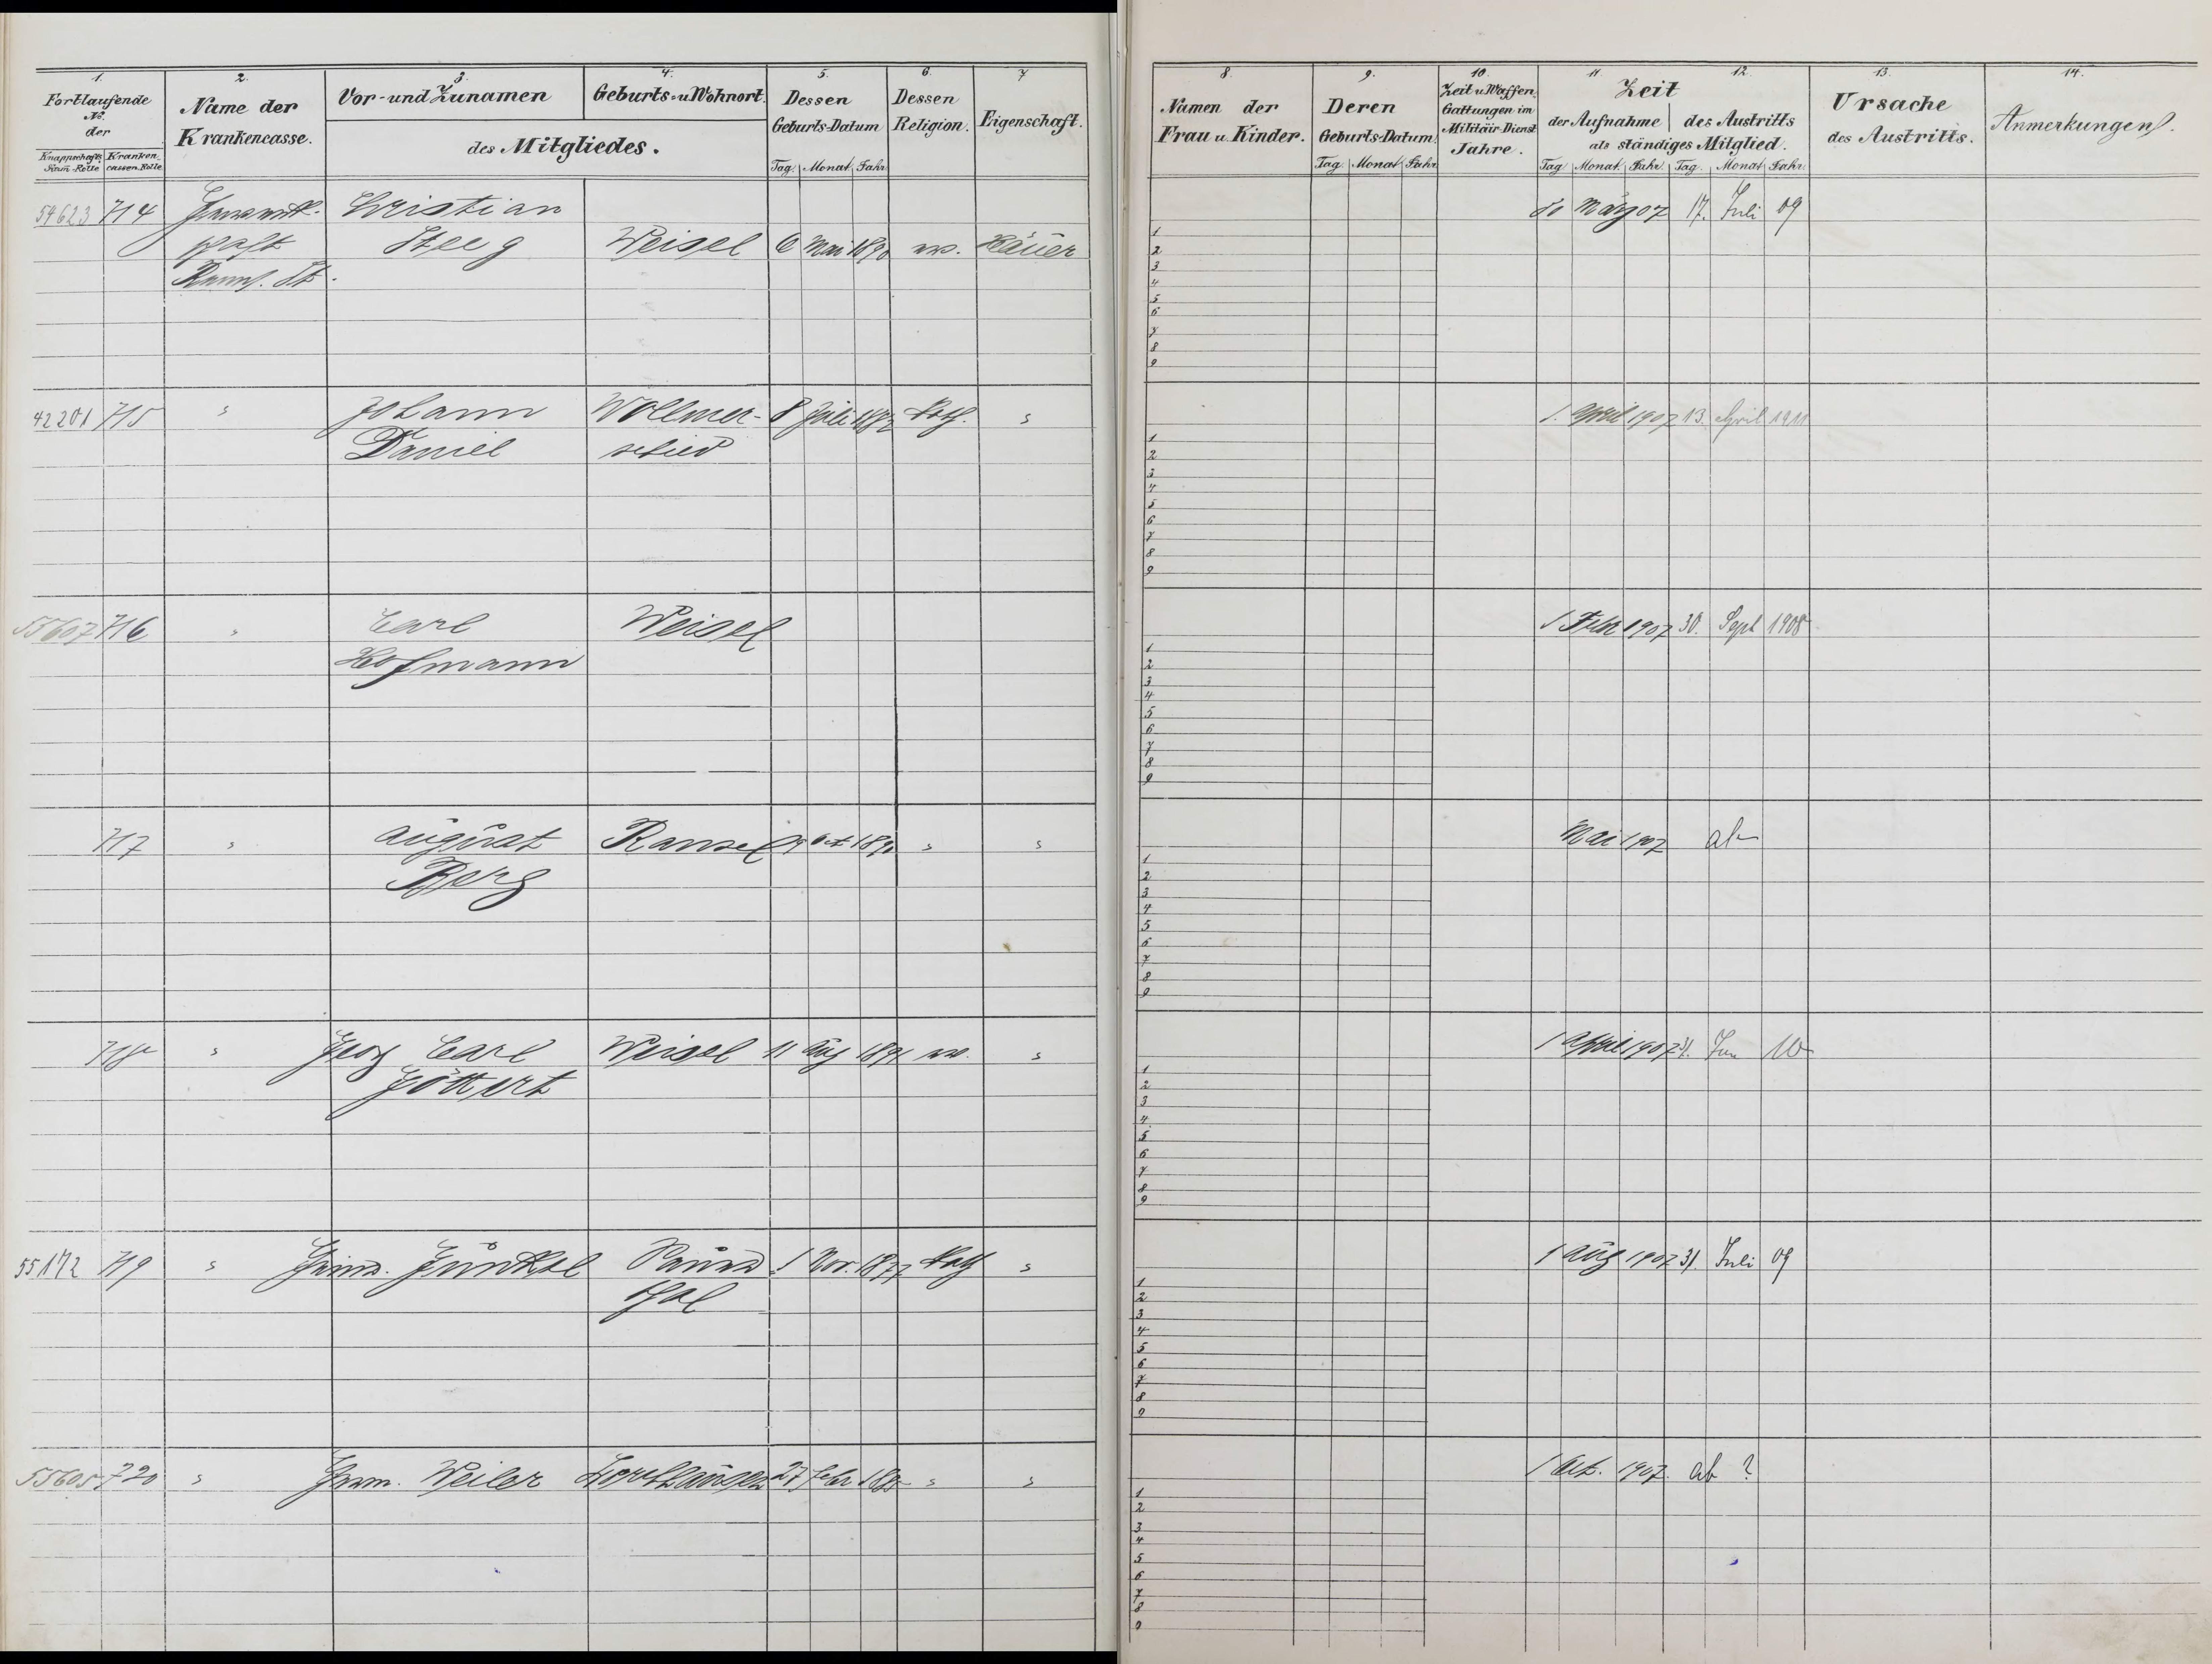 1. 2. 3. 4. 5. 6. 7
Fortlaufende No. der
Knappschafts Stam-Rolle Kranken cassen-Rolle
Name der Krankencasse.
Vor- und Zunamen Geburts- u Wohnort.
des Mitgliedes.
Dessen Geburts-Datum
Tag. Monat Jahr.
Dessen Religion.
Eigenschaft.
8. 9. 10. 11 12. 13. 14.
Namen der Frau u. Kinder.
Deren Geburts-Datum.
Tag Monat Jahr.
Zeit u Waffen-Gattungen im Militäir-Dienst Jahre.
Zeit
der Aufnahme des Austritts
als ständiges Mitglied.
Tag Monat. Jahr. Tag. Monat Jahr.
Ursache des Austritts.
Anmerkungen.
54623 714 Christian März 07 17. Juli 09
Steeg Weisel 6 Mai 1890 ev. Häuer
42201 715 " Johann Wollmer- 8 Juli Kath. " 1. April 1907 13. April 1911
Daniel schied
55607 716 " Carl Weisel 1 Febr 1907 30. Sept 1908
Hofmann
717 " August Ransel Oct " " Mai 1907 ab
Berg
718 " Georg Carl Weisel 11 Aug 1891 ev. " 1 April 1907 31. Jan 10
Göttert
55172 719 " Günkel Sauer 1 Nov. 1877 Kath " 1 Aug 1907 31. Juli 09
thal
55605 720 " Weiler 27 Febr " " 1 Oct. 1907. ab ?
1
2
3
4
5
6
7
8
9
1
2
3
4
5
6
7
8
9
1
2
3
4
5
6
7
8
9
1
2
3
4
5
6
7
8
9
1
2
3
4
5
6
7
8
9
1
2
3
4
5
6
7
8
9
1
2
3
4
5
6
7
8
9